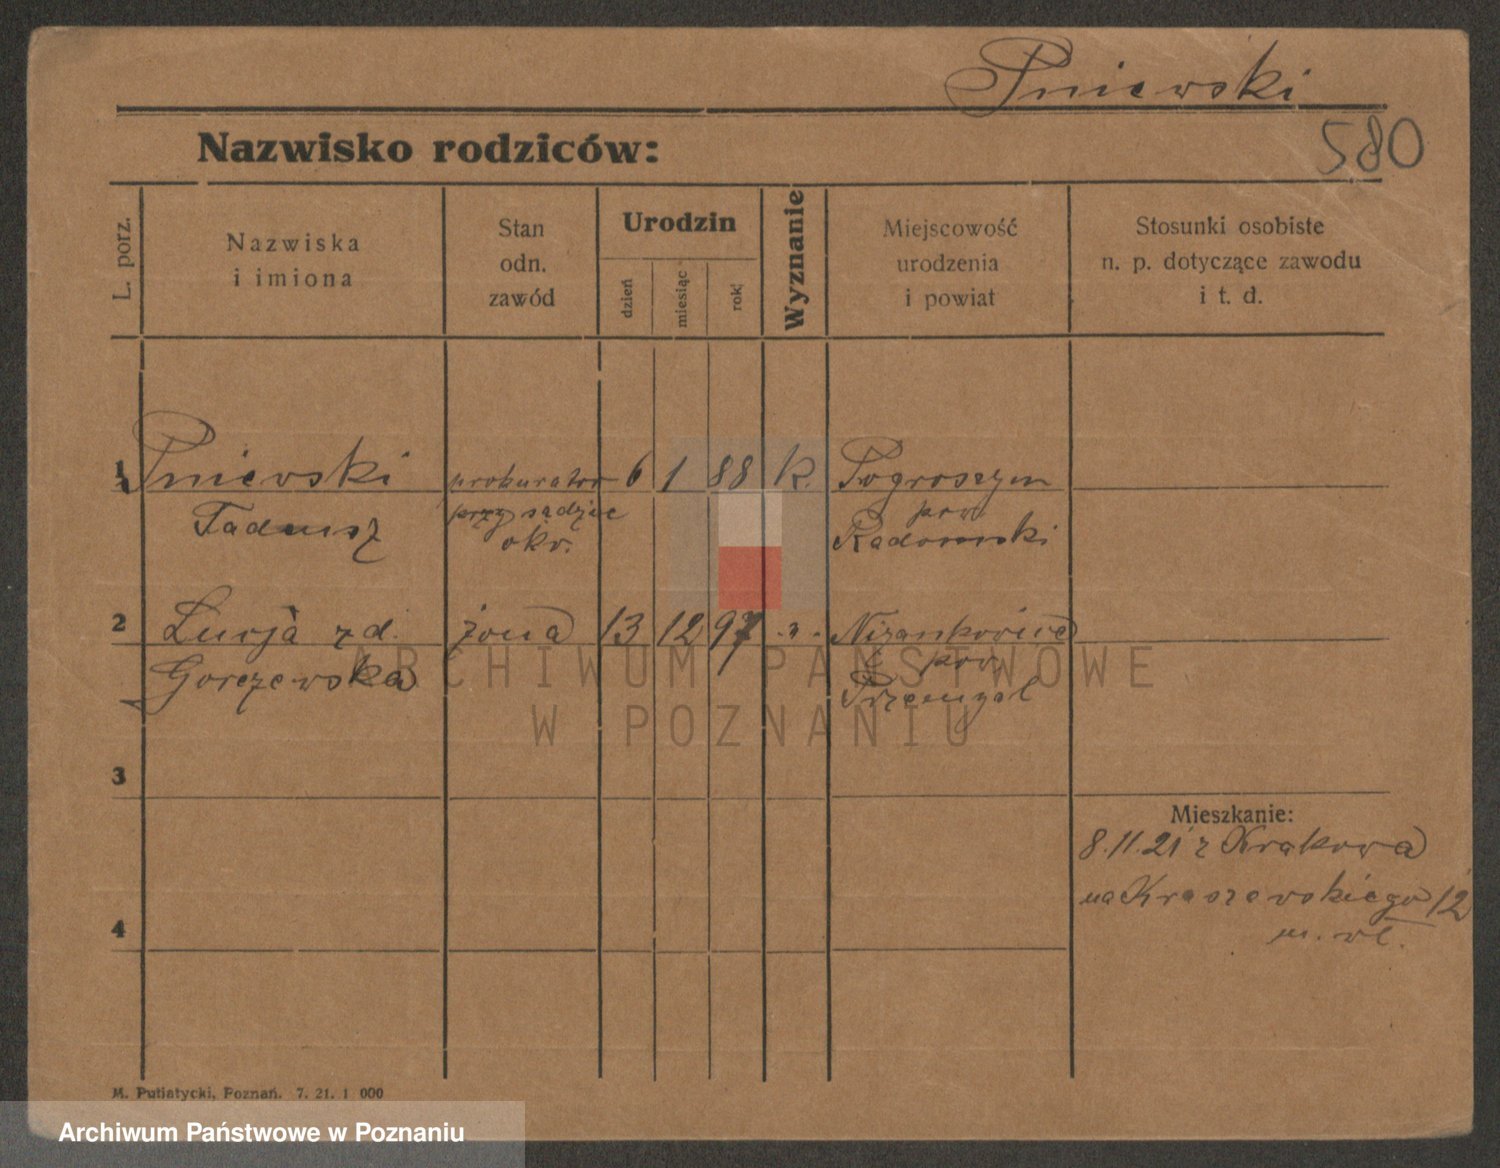 Pniewski
580
Nazwisko rodziców:
L. porz.
Nazwiska
i imiona
Stan
odn.
zawód
Urodzin
dzień
miesiąc
rok
Wyznanie
Miejscowość
urodzenia
i powiat
Stosunki osobiste
n. p. dotyczące zawodu
i t. d.
1 Pniewski prokurator 6 1 88 k. Pogroszyn
Tadeusz przy sądzie pow.
okr. Radomski
2 Lucja z d. żona 13 12 97 Nizankowice
Gorczewska pow.
Przemysl
ARCHIWUM PAŃSTWOWE
W POZNANIU
3
Mieszkanie:
8.11.21 z Krakowa
na Kraszewskiego 12
m. wł.
4
M. Putiatycki, Poznań. 7. 21. 1 000
Archiwum Państwowe w Poznaniu